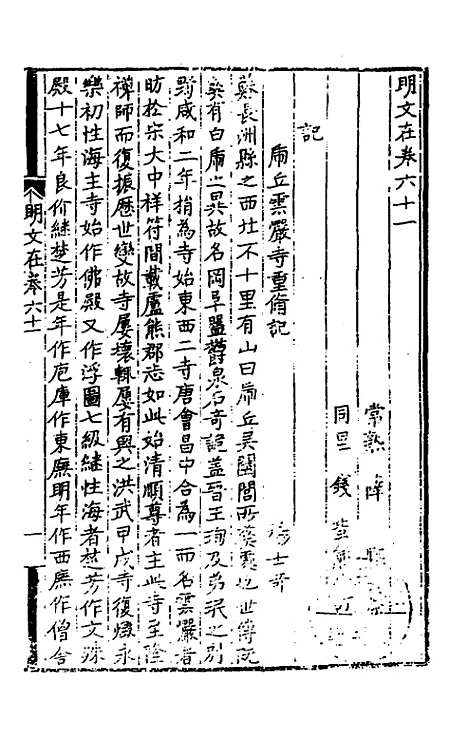 明文在卷六十一
常熟薛熙
同里錢
記
虎丘雲巖寺重脩記
楊士奇
蘇長洲縣之西北不十里有山曰虎丘吳闔閭所葬處也世傳既
葬有白虎之異故名岡阜盤鬱泉石奇詭蓋晉王珣及弟珉之別
墅咸和二年捐為寺始東西二寺唐會昌中合為一而名雲巖者
昉於宗大中祥符間載盧熊郡志如此始清順尊者主此寺至隆
禪師而復振歷世變故寺屢壞輒屢有興之洪武甲戌寺復燬永
樂初性海主寺始作佛殿又作浮圖七級繼性海者楚芳作文殊
殿十七年良价繼楚芳是年作庖庫作東廡明年作西廡作僧舍
明文在卷六十一
一